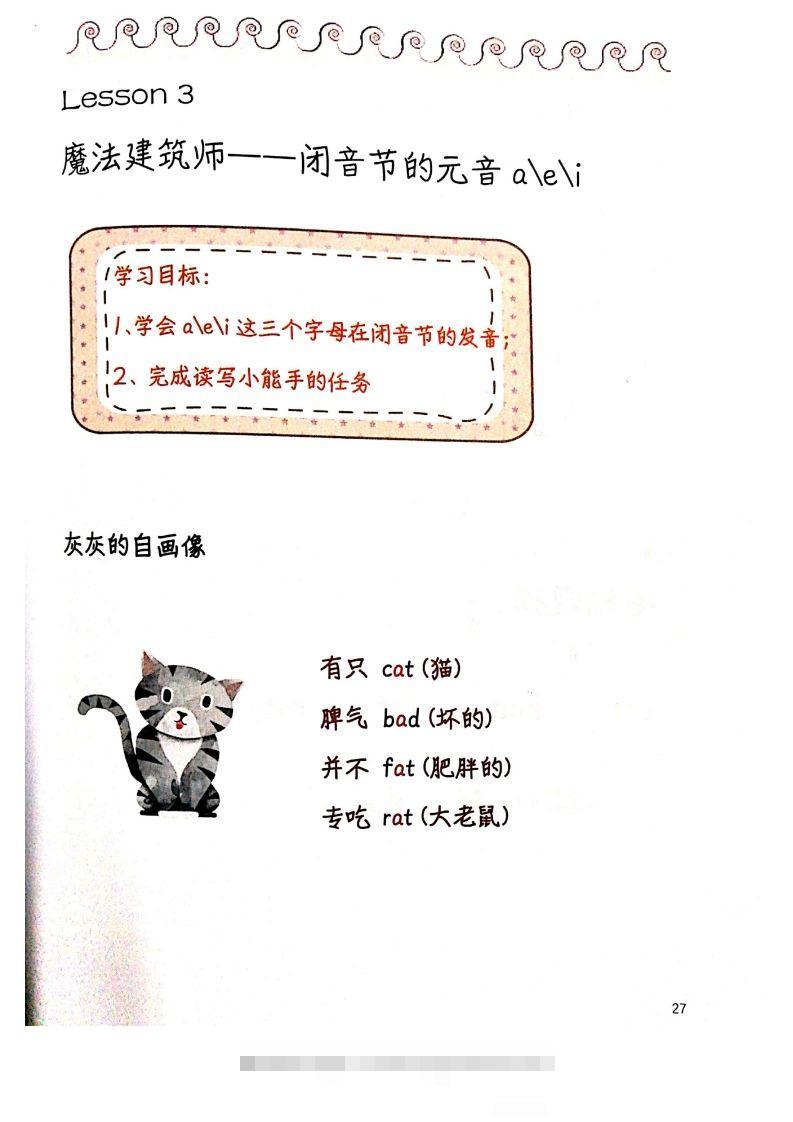 Lesson 3
魔法建筑师——闭音节的元音 a\e\i
学习目标：
1、学会 a\e\i 这三个字母在闭音节的发音；
2、完成读写小能手的任务
灰灰的自画像
有只 cat (猫)
脾气 bad (坏的)
并不 fat (肥胖的)
专吃 rat (大老鼠)
27